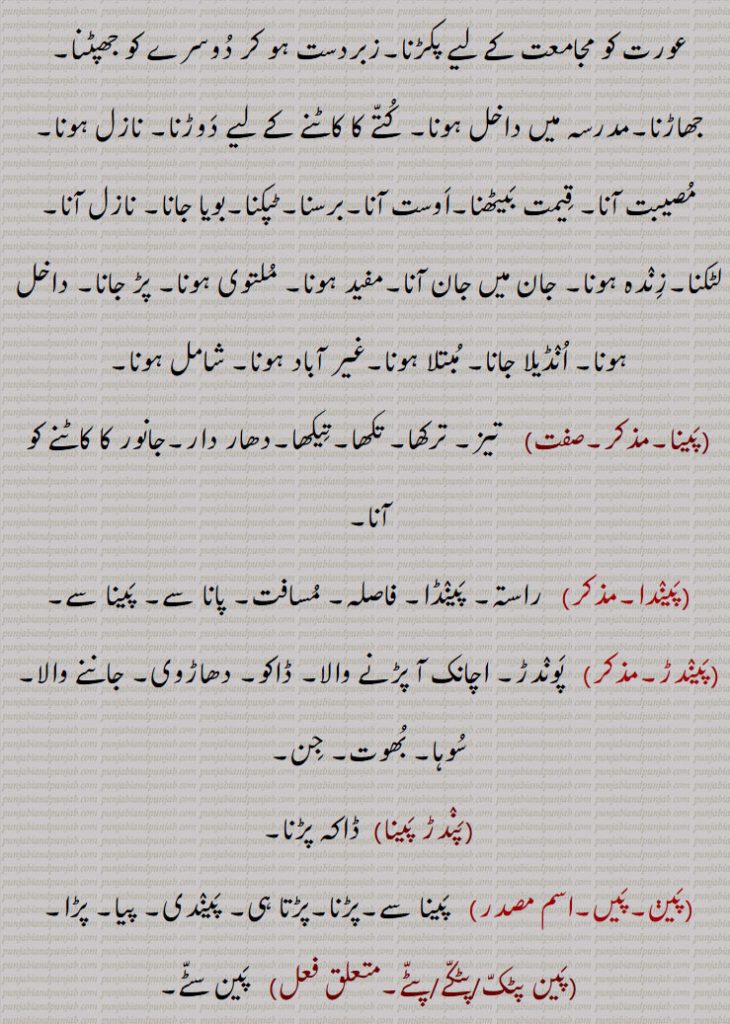 عورت کو مجامعت کے لیے پکڑنا۔زبردست ہو کر دُوسرے کو جھپٹنا۔
جھاڑنا۔مدرسہ میں داخل ہونا۔ کُتّے کا کاٹنے کے لیے دَوڑنا۔ نازل ہونا۔
مُصیبت آنا۔ قِیمت بَیٹھنا۔اَوست آنا۔برسنا۔ٹپکنا۔بویا جانا۔ نازل آنا۔
لٹکنا۔زِنْدہ ہونا۔ جان میں جان آنا۔مفید ہونا۔ مُلتوی ہونا۔ پڑ جانا۔ داخل
ہونا۔ اُنْڈیلا جانا۔ مُبتلا ہونا۔غیر آباد ہونا۔ شامل ہونا۔
(پَینا۔مذکر۔صفت) تیز۔ ترکھا۔ تکھا۔تِیکھا۔دھار دار۔جانور کا کاٹنے کو
آنا۔
(پَینْدا۔مذکر) راستہ۔ پَینْڈا۔ فاصلہ۔ مُسافت۔ پانا سے۔ پَینا سے۔
(پَینْدڑ۔مذکر) پَونْدڑ۔ اچانک آ پڑنے والا۔ ڈاکو۔ دھاڑوی۔ جاننے والا۔
سُوہا۔ بُھوت۔ جِن۔
(پَنْدڑ پَینا) ڈاکہ پڑنا۔
(پَین۔پَیں۔اسم مصدر) پَینا سے۔پڑنا۔پڑتا ہی۔ پَینْدی۔ پیا۔ پڑا۔
(پَین پٹکّ/پٹکّے/پٹّے۔متعلق فعل) پَین سٹّے۔